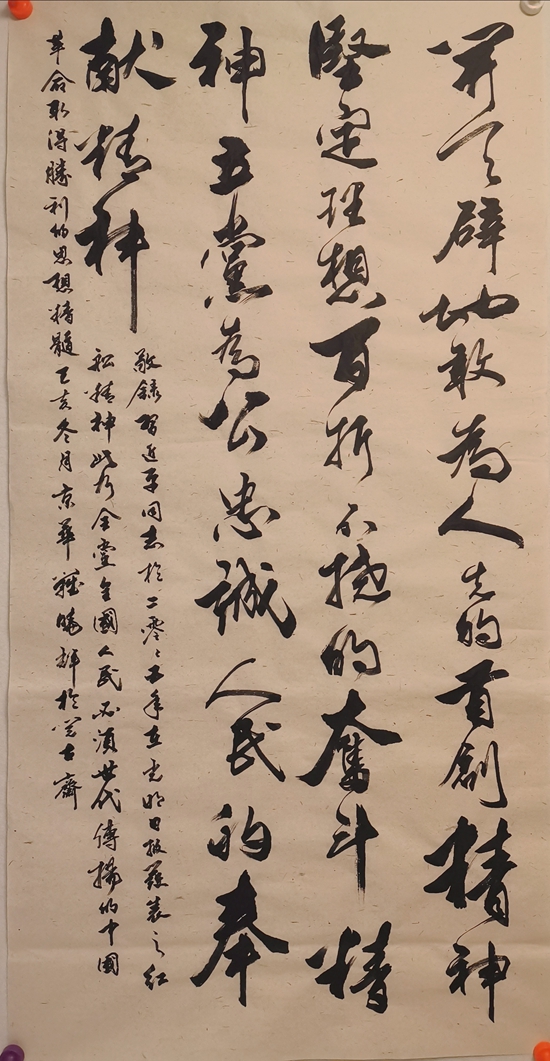 開天辟地敢為人先的首創精神
堅定理想百折不撓的奮斗精
神立黨為公忠誠人民的奉
献精神
敬錄習近平同志於二零零五年在光明日報發表之紅
船精神此乃全黨全國人民必須世代傳揚的中國
革命取得勝利的思想精髓己亥冬月京華曉輝於古齋